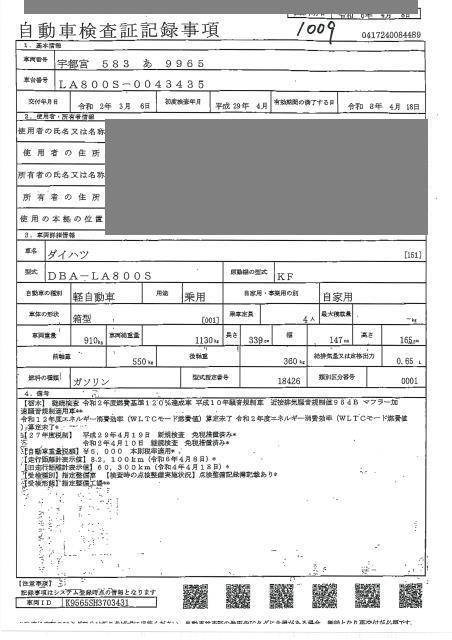 自動車検査証記録事項
1009
0417240084489
1. 基本情報
車両番号 宇都宮 583 あ 9965
車台番号 LA800S-0043435
交付年月日 令和 2年 3月 6日 初度検査年月 平成29年 4月 有効期間の満了する日 令和 8年 4月18日
2. 使用者・所有者情報
使用者の氏名又は名称
使用者の住所
所有者の氏名又は名称
所有者の住所
使用の本拠の位置
3. 車両詳細情報
車名 ダイハツ [151]
型式 DBA-LA800S 原動機の型式 KF
自動車の種別 軽自動車 用途 乗用 自家用・事業用の別 自家用
車体の形状 箱型 [001] 乗車定員 4人 最大積載量 -kg
車両重量 910kg 車両総重量 1130kg 長さ 339cm 幅 147cm 高さ 165cm
前軸重 550kg 後軸重 360kg 総排気量又は定格出力 0.65 L
燃料の種類 ガソリン 型式指定番号 18426 類別区分番号 0001
4. 備考
【栃木】 継続検査 令和2年度燃費基準120%達成車 平成10年騒音規制車 近接排気騒音規制値 マフラー加
速騒音規制適用車**
令和12年度エネルギー消費効率(WLTCモード燃費値)算定未了 令和2年度エネルギー消費効率(WLTCモード燃費値
)算定未了*
[27年度税制] 平成29年4月19日 新規検査 免税措置済み*
令和2年4月10日 継続検査 免税措置済み*
[自動車重量税額] ¥5,000 本則税率適用*
[走行距離計表示値] 82,100km (令和6年4月8日)*
[旧走行距離計表示値] 60,300km (令和4年4月18日)*
[受検種別] 指定整備車 [検査時の点検整備実施状況] 点検整備記録簿記載あり*
[受検形態] 指定整備工場**
【注意事項】
記録事項はシステム登録時点の情報となります
車両ID K9565SH3703431